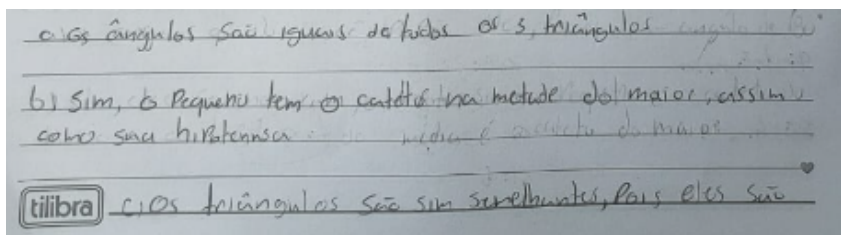 Os ângulos são iguais de todos os 3, triângulos
b) Sim, o Pequeno tem o catetos na metade do maior, assim
como sua hipotenusa
tilibra c) Os triângulos são sim semelhantes, Pois eles são